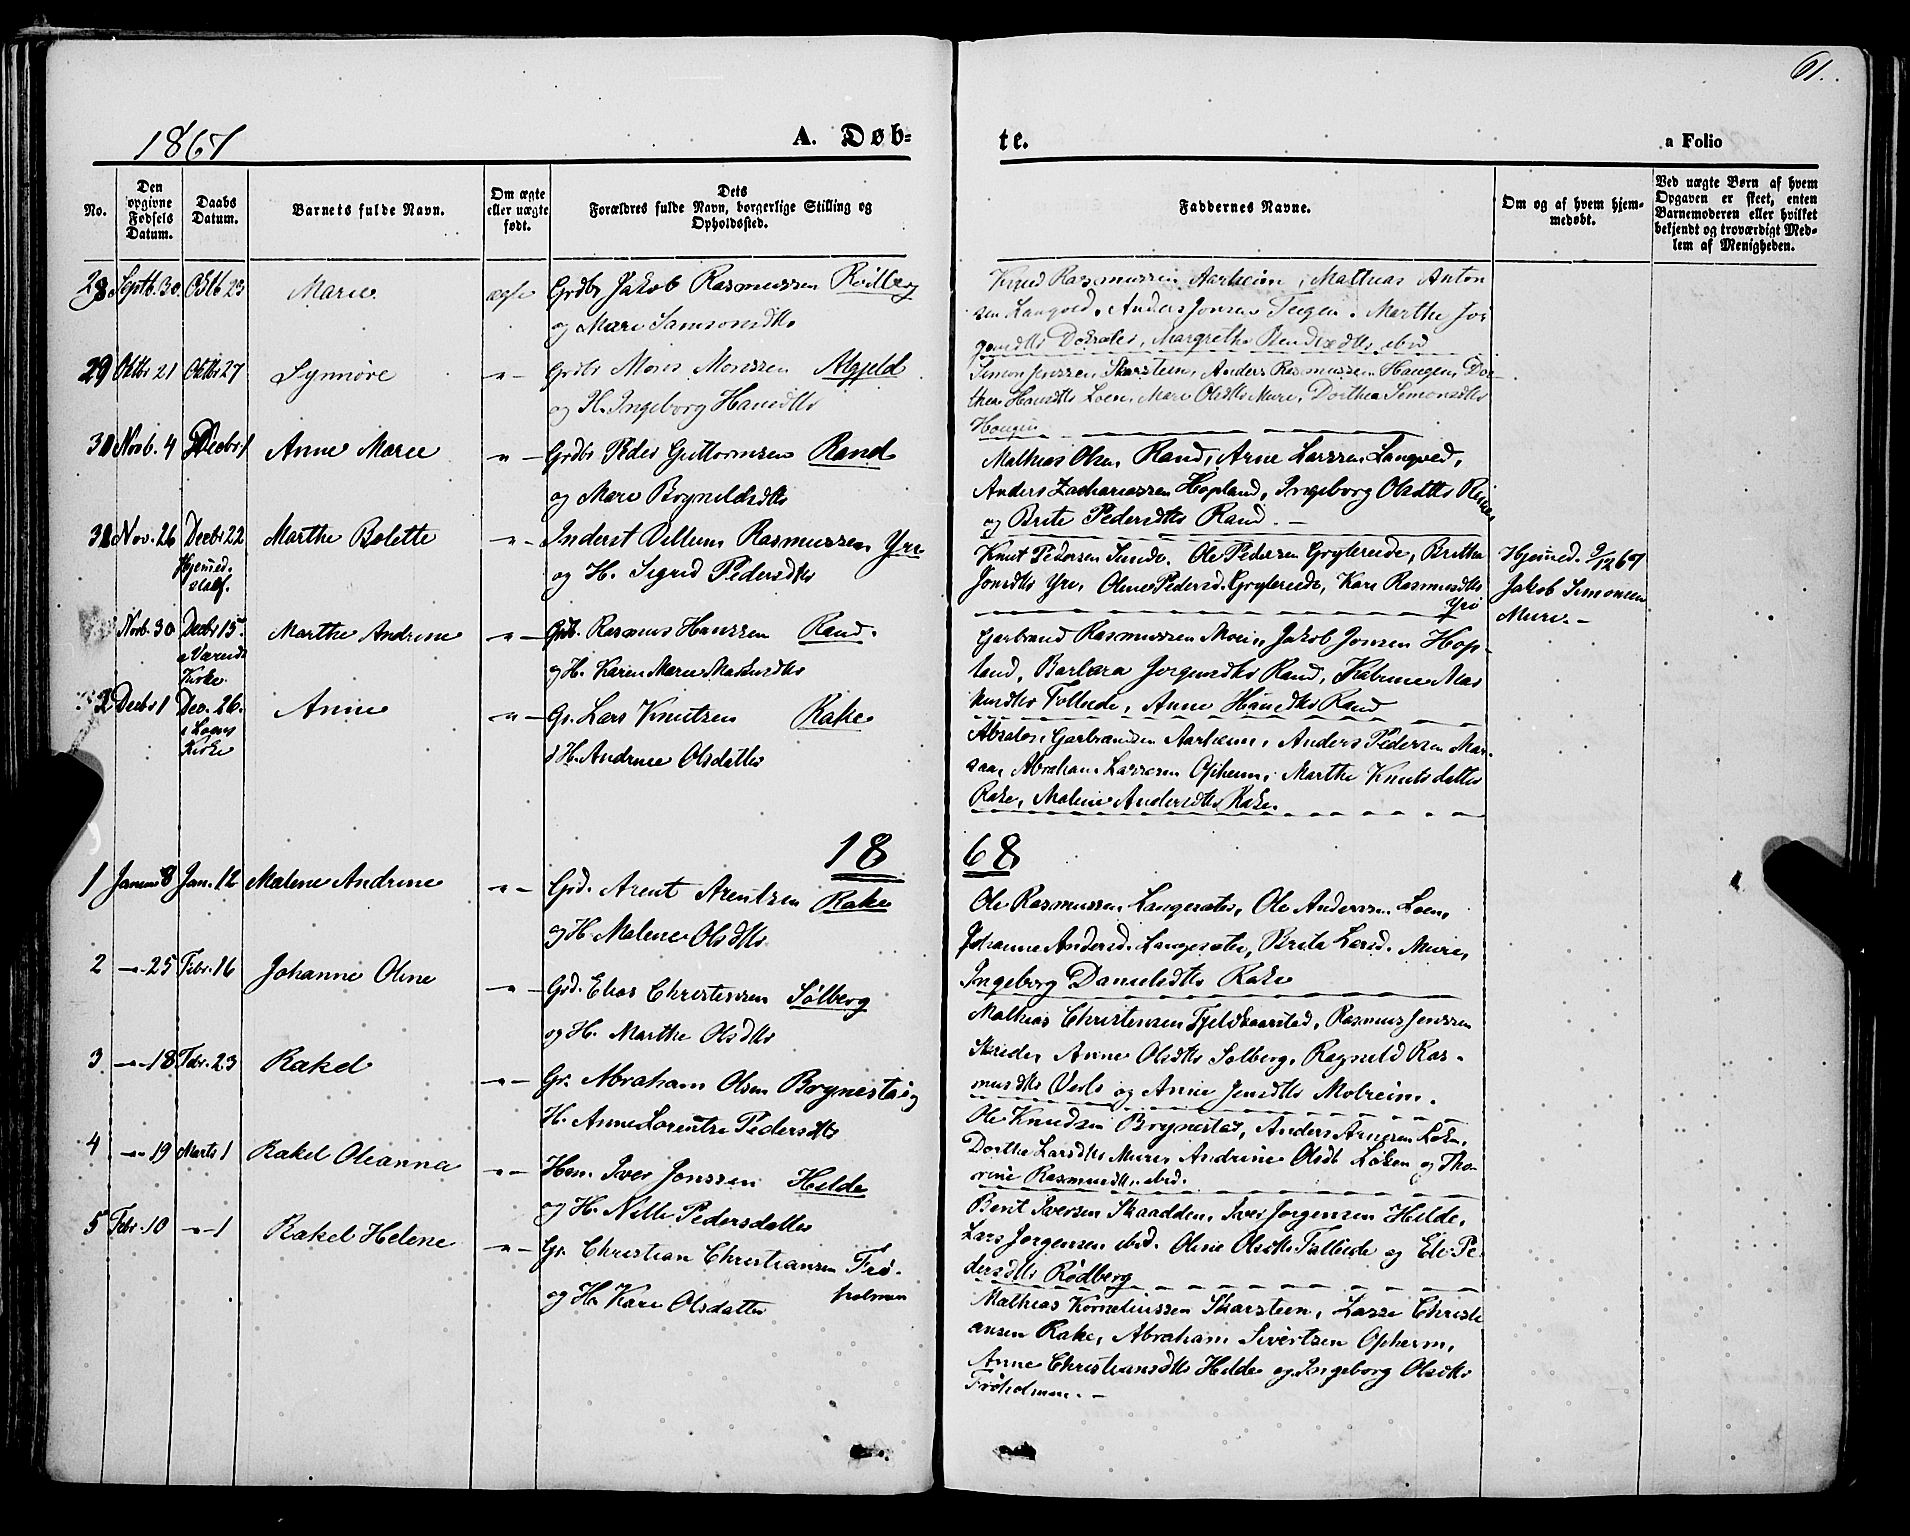 61.
1867
A. Døb-
te.
a Folio
No.
Den opgivne Fødsels Datum.
Daabs Datum.
Barnets fulde Navn.
Om ægte eller uægte født.
Dets Forældres fulde Navn, borgerlige Stilling og Opholdssted.
Faddernes Navne.
Om og af hvem hjemmedøbt.
Ved uægte Børn af hvem Opgaven er skeet, enten Barnemoderen eller hvilket bekjendt og troværdigt Medlem af Menigheden.
28 Septb. 30 Oktb 23 Marie ægte Grdbr Jakob Rasmussen Rödberg
og Mari Samsonsdtr
Knud Rasmussen Aarheim, Mathias Anton
sen Langved, Anders Jonsen Teigen, Marthe Jör
gensdtr, Margrethe ebd
29 Oktbr 21 Oktbr 27 Synnöve -"- Grdbr Mons Monssen
og H. Ingeborg Hansdtr
Simon Jenssen Skarstein, Anders Rasmussen Haugen, Dor-
thea Hansdtr Loen, Mari Olsdtr Muri, Dorthea Simonsdtr
Haugen
Novb. 4 Decbr 1 Anne Marie -"- Grdbr Peder Guttormsen Rand
og Mari Brynildsdtr
Mathias Olsen Rand, Arne Larssen Langved,
Anders Zachariassen Hopland, Ingeborg Olsdtr
og Brite Pedersdtr Rand. -
Nov. 26 Decbr 22 Marthe Bolette -"- Inderst Rasmussen Yri
Hjemmed.
og H. Sigrid Pedersdtr
Knut Pedersen Sunde, Ole Pedersen Grytereide, Brithe
Jonsdtr Yri, Oline Pedersd. Grytereide, Kari Rasmusdtr
Yri
Hjemmed. 9/12 67
Jakob Simonsen
Muri. -
Novb. 30 Decbr 15. Marthe Andrine -"- Gdb. Rasmus Hanssen Rand.
Kirke
og H. Karen Marie
Garbrand Rasmussen Moen, Jakob Jonsen Hop-
land, Barbara Jörgensdtr Rand, Kabrine Mas
Tollede, Anne Hansdtr Rand
Decbr 1 Dec. 26. Anne -"- Gr. Lars Knutsen Rake
i Loens
Kirke
& H. Andrine Olsdatter
Absalon Garbrandsen Aarheim, Anders Pedersen Mar-
saa, Abraham Larssen Opheim, Marthe Knutsdatter
Rake, Malene Andersdtr Rake.
18
68
1 Januar 8 Jan. 12 Malene Andrine -"- Grd. Arent Arentsen Rake
og H. Malene Olsdtr
Ole Rasmussen Langesæter, Ole Andersen Loen,
Johanne Andersd. Langesæter, Brita Larsd. Muri,
Ingeborg Danielsdtr Rake
2 -"- 25 Febr. 16 Johanne Oline -"- Grd. Elias Christensen Solberg
og H. Marthe Olsdtr
Mathias Christensen Fjelskaarstad, Rasmus Jenssen
Skrede, Anne Olsdtr Solberg, Ragnild Ras-
musdtr og Anne Jensdtr Molreim.
3 -"- 18 Febr. 23 Rakel -"- Gr. Abraham Olsen Brynestad og
H. Anne Lorentse Pedersdtr
Ole Knudsen Brynestad, Anders Arnesen Löken,
Dorthe Larsdtr Muri, Andrine Olsdt Löken og Tho-
rine Rasmusdtr ebd.
4 -"- 19 Marts 1 Rakel Oleanna -"- Hsm. Iver Jonssen Hilde
og H. Nille Pedersdatter
Berit Iversen Skaadden, Iver Jørgensen Hilde,
Lars Jørgensen ebd. Oline Olsdtr Tollede og Eli Pe-
dersdtr Rødberg
5 Febr. 10 -"- 1 Rakel Helene -"- Gr. Christian Christiansen Frø-
holmen
og H. Kari Olsdatter
Mathias Korneliussen Skarsteen, Lasse Christi
ansen Rake, Abraham Sivertsen Opheim,
Anne Christiansdtr Hilde og Ingeborg Olsdtr
Frøholmen. -